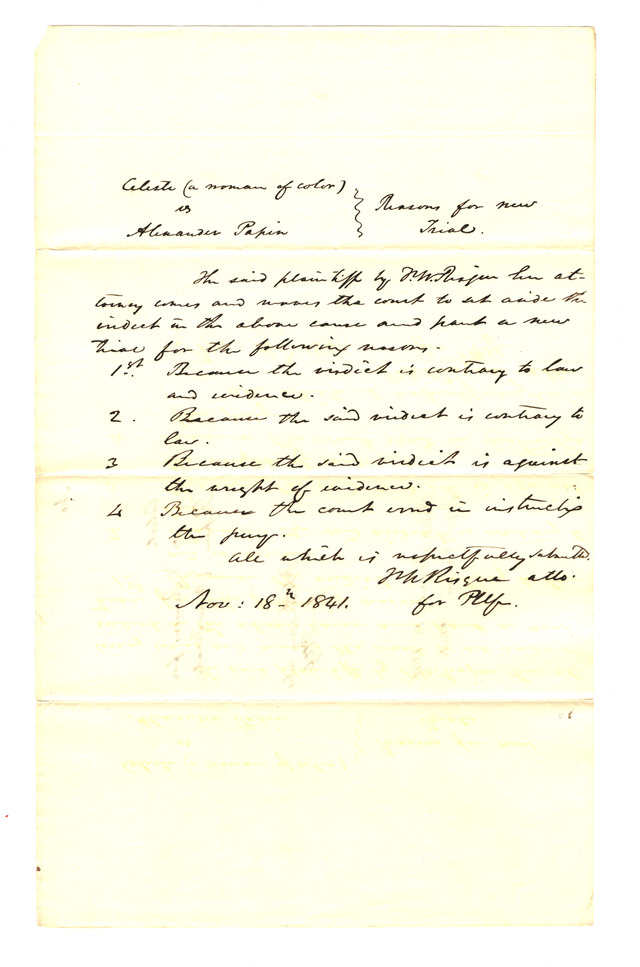 Celeste (a woman of color)
vs
Alexander Papin
Reasons for new
Trial.
The said plaintiff by F.W. Risque her at-
torney comes and moves the court to set aside the
verdict in the above cause and grant a new
trial for the following reasons.
1st. Because the verdict is contrary to law
and evidence.
2. Because the said verdict is contrary to
law.
3 Because the said verdict is against
the weight of evidence.
4 Because the court erred in instructing
the jury.
All which is respectfully submitted.
Risque atto.
Nov: 18th 1841. for Plff.